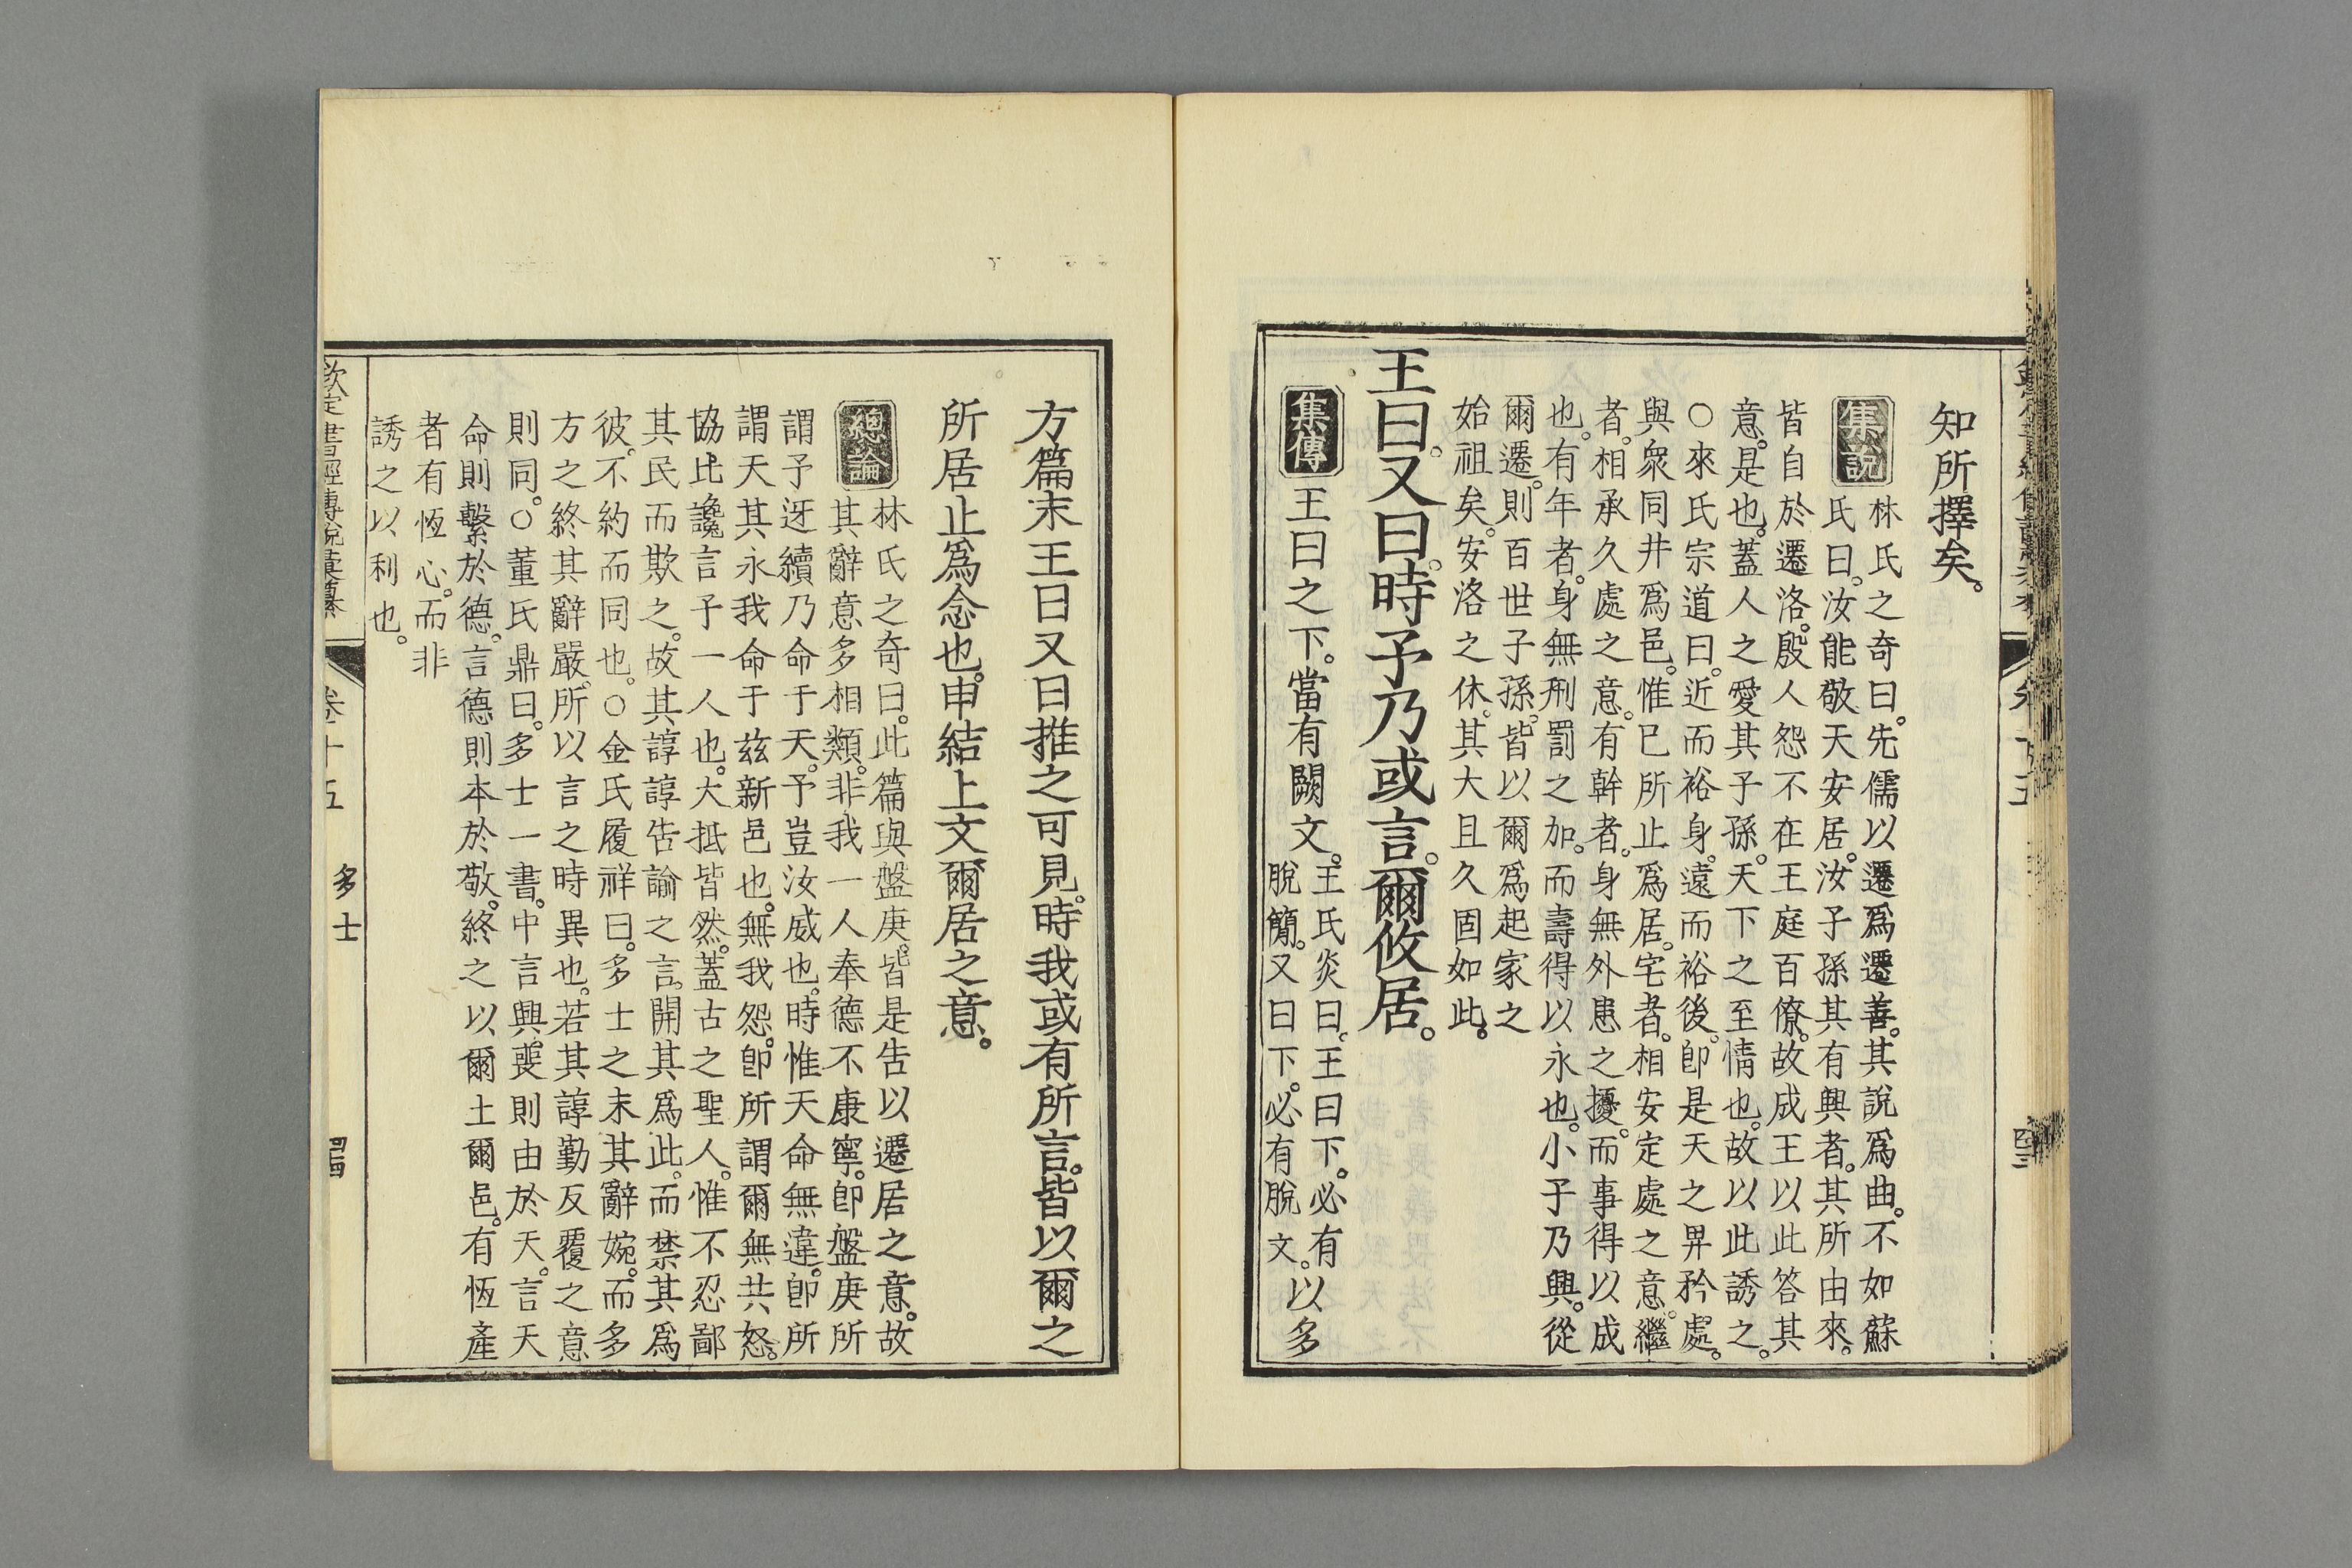 知所擇矣。
集說
林氏之奇曰。先儒以遷爲遷善。其說爲曲。不如蘇
氏曰。汝能敬天安居。汝子孫其有興者。其所由來。
皆自於遷洛。殷人怨不在王庭百僚。故成王以此答其
意。是也。蓋人之愛其子孫。天下之至情也。故以此誘之。
○來氏宗道曰。近而裕身。遠而裕後。卽是天之畀矜處。
與衆同井爲邑。惟已所止爲居。宅者。相安定處之意。繼
者。相承久處之意。有幹者。身無外患之擾。而事得以成
也。有年者。身無刑罰之加。而壽得以永也。小子乃興。從
爾遷。則百世子孫。皆以爾爲起家之
始祖矣。安洛之休。其大且久固如此。
王曰。又曰。時予乃或言。爾攸居。
集傳
王曰之下。當有闕文。
王氏炎曰。王曰下。必有
脫簡。又曰下。必有脫文。
以多
方篇末王曰又曰推之可見。時我或有所言。皆以爾之
所居止爲念也。申結上文爾居之意。
總論
林氏之奇曰。此篇與盤庚。皆是告以遷居之意。故
其辭意多相類。非我一人奉德不康寧。卽盤庚所
謂予迓續乃命于天。予豈汝威也。時惟天命無違。卽所
謂天其永我命于茲新邑也。無我怨。卽所謂爾無共怒。
協比讒言予一人也。大抵皆然。蓋古之聖人。惟不忍鄙
其民而欺之。故其諄諄告諭之言。開其爲此。而禁其爲
彼。不約而同也。○金氏履祥曰。多士之末其辭婉。而多
方之終其辭嚴。所以言之時異也。若其諄勤反覆之意
則同。○董氏鼎曰。多士一書。中言興喪則由於天。言天
命則繫於德。言德則本於敬。終之以爾土爾邑。有恆產
者有恆心。而非
誘之以利也。
欽定書經傳說彙纂
卷十五
多士